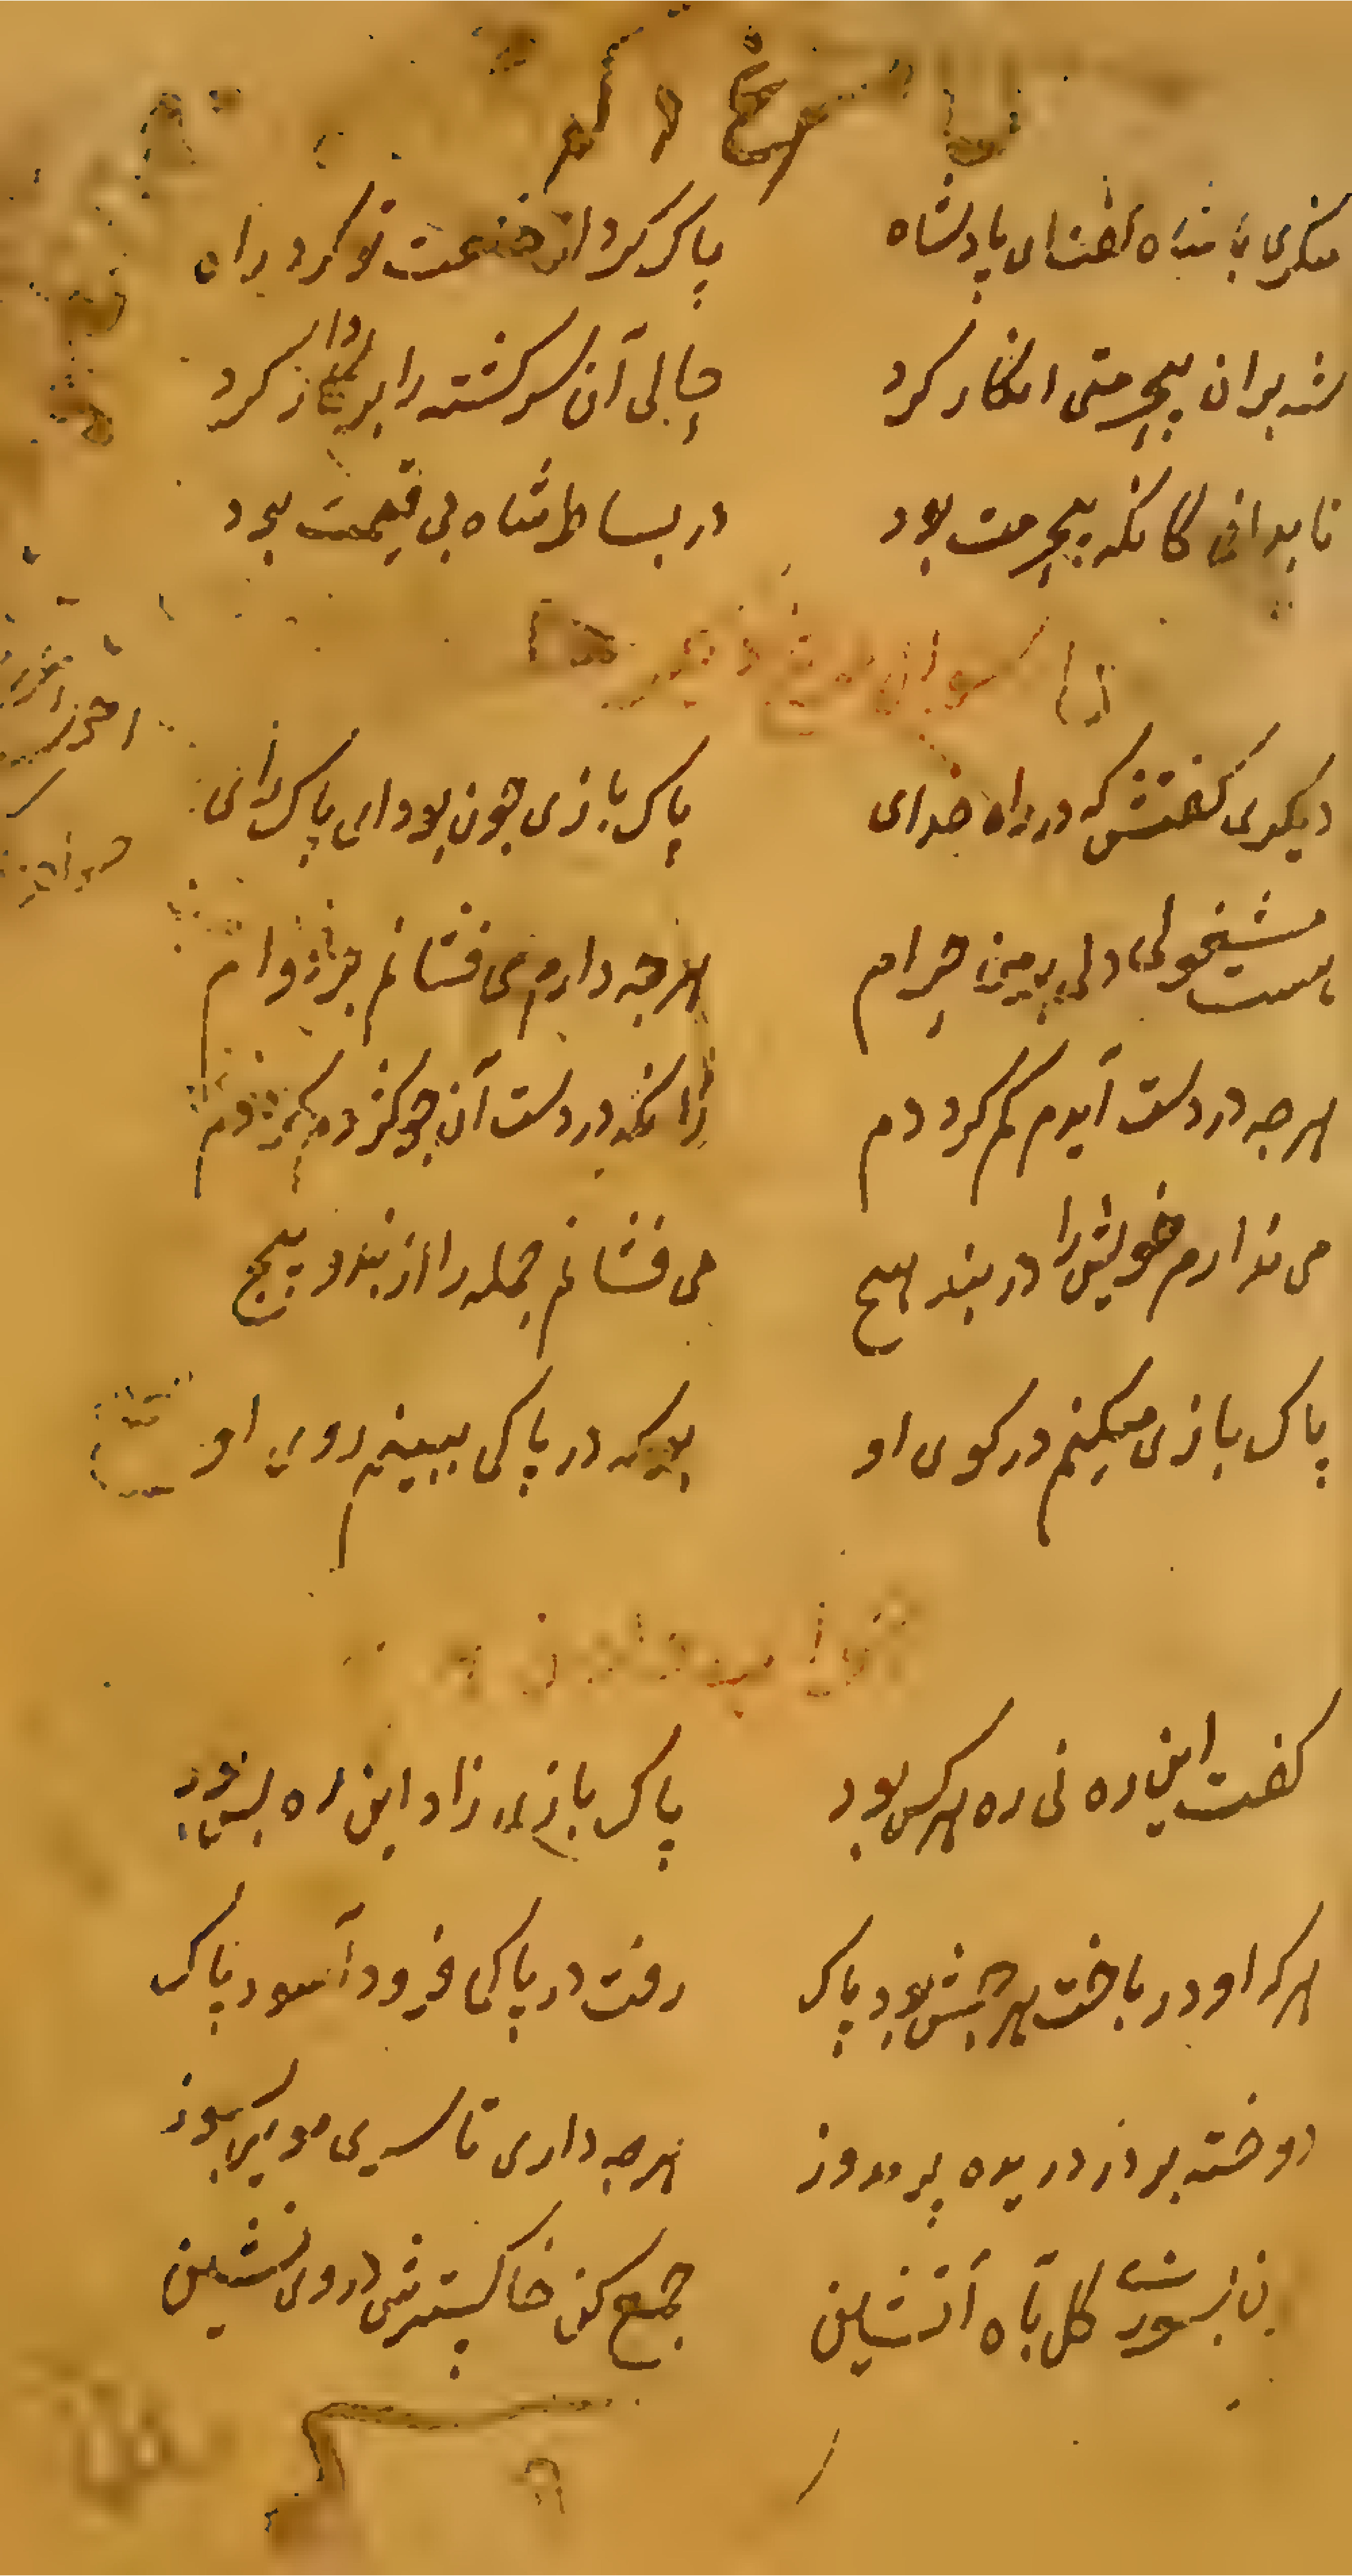 منکری با شاه گفت ای پادشاه پاک کرد از خلعت تو گرد راه
شه بران بیحرمتی انکار کرد حالی آن سرگشته را بر دار کرد
تا بدانی کانکه بیحرمت بود در بساط شاه بی قیمت بود
دیکری کفتش که در راه خدای پاک بازی چون بود ای پاک رای
هست مشغولی دل بر من حرام هرچه دارم می فشانم بر دوام
هرچه در دست آیدم کم کردد م زانکه در دست آن چو کژدم کرددم
می ندارم خویش را در بند هیچ می فشانم جمله را از بند و پیچ
پاک بازی میکنم در کوی او بوکه در پاکی ببینم روی او
کفت این ره نی ره هرکس بود پاک بازی زاد این ره بس بود
هرکه او در باخت هرچش بود پاک رفت در پاکی فرود آسود پاک
دوخته بر در دریده بر مدوز هرچه داری تا سر مویی بسوز
چون بسوزی کل بآه آتشین جمع کن خاکسترش در وی نشین